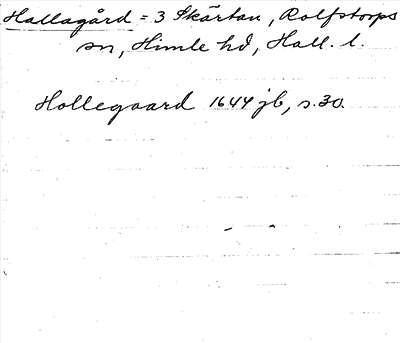 Hallagård = 3 Skärtan, Rolfstorps
sn, Himle hd, Hall. l.
Hollegaard 1644 jb, s. 30.